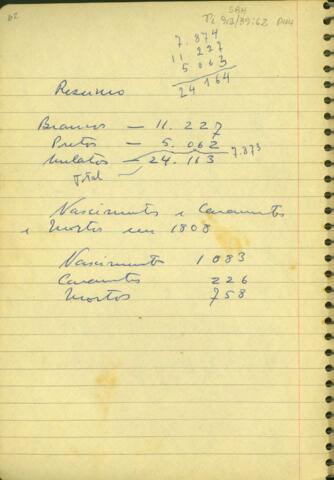 62
SAH
7.874
11.227
5.063
24 164
Resumo
Brancos — 11.227
Pretos — 5.062
Mulatos — 7.873
Total 24.163
Nascimentos e Casamentos
e Mortos em 1808
Nascimentos 1 083
Casamentos 226
Mortos 758